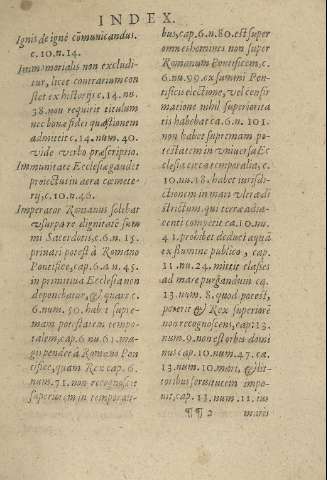 INDEX.
Ignis de igne cõmunicandus.
c. 10. n. 14.
Immemorialis non excludi-
tur, licet contrarium con
stet ex historijs c. 14. nu.
38. non requirit titulum
nec bonæ fidei quæstionem
admittit c. 14. num. 40.
vide verbo præscriptio.
Immunitate Ecclesiæ gaudet
proiectus in aera cœmete-
rij, c. 10. n. 46.
Imperator Romanus solebat
vsurpare dignitate sum
mi Sacerdotis, c. 6. n. 15.
priuari potest à Romano
Pontifice, cap. 6. à n. 45.
in primitiua Ecclesia non
deponebatur, & quare c.
6. num. 50. habet supre
mam potestatem tempo-
ralem, cap. 6. nu. 61. ma-
gis pendet à Romano Pon
tifice, quam Rex cap. 6.
num. 71. non recognoscit
superiorem in temporali-
bus, cap. 6. n. 80. est super
omnes homines non super
Romanum Pontificem, c.
6. nu. 99. ex summi Pon-
tificis electione, vel confir
matione nihil superiorita
tis habebat ca. 6. n. 101.
non habet supremam po-
testatem in vniuersa Ec
clesia circa temporalia, c.
10. nu. 18. habet iurisdi-
ctionem in mari vlera di
strictum, qui terræ adia-
centi competit ca. 10. nu.
41. prohibet deduci aquã
ex flumine publico, cap.
11. nu. 24. mittit classes
ad mare purgandum ca.
13. num. 8. quod potest,
poterit & Rex superiorẽ
non recognoscens, cap. 13.
num. 9. non est orbis domi
nus cap. 10. num. 47. ca.
13. num. 10. mari, & lit-
toribus seruitutem impo-
nit, cap. 13. num. 11. ius
¶¶ 2 maris